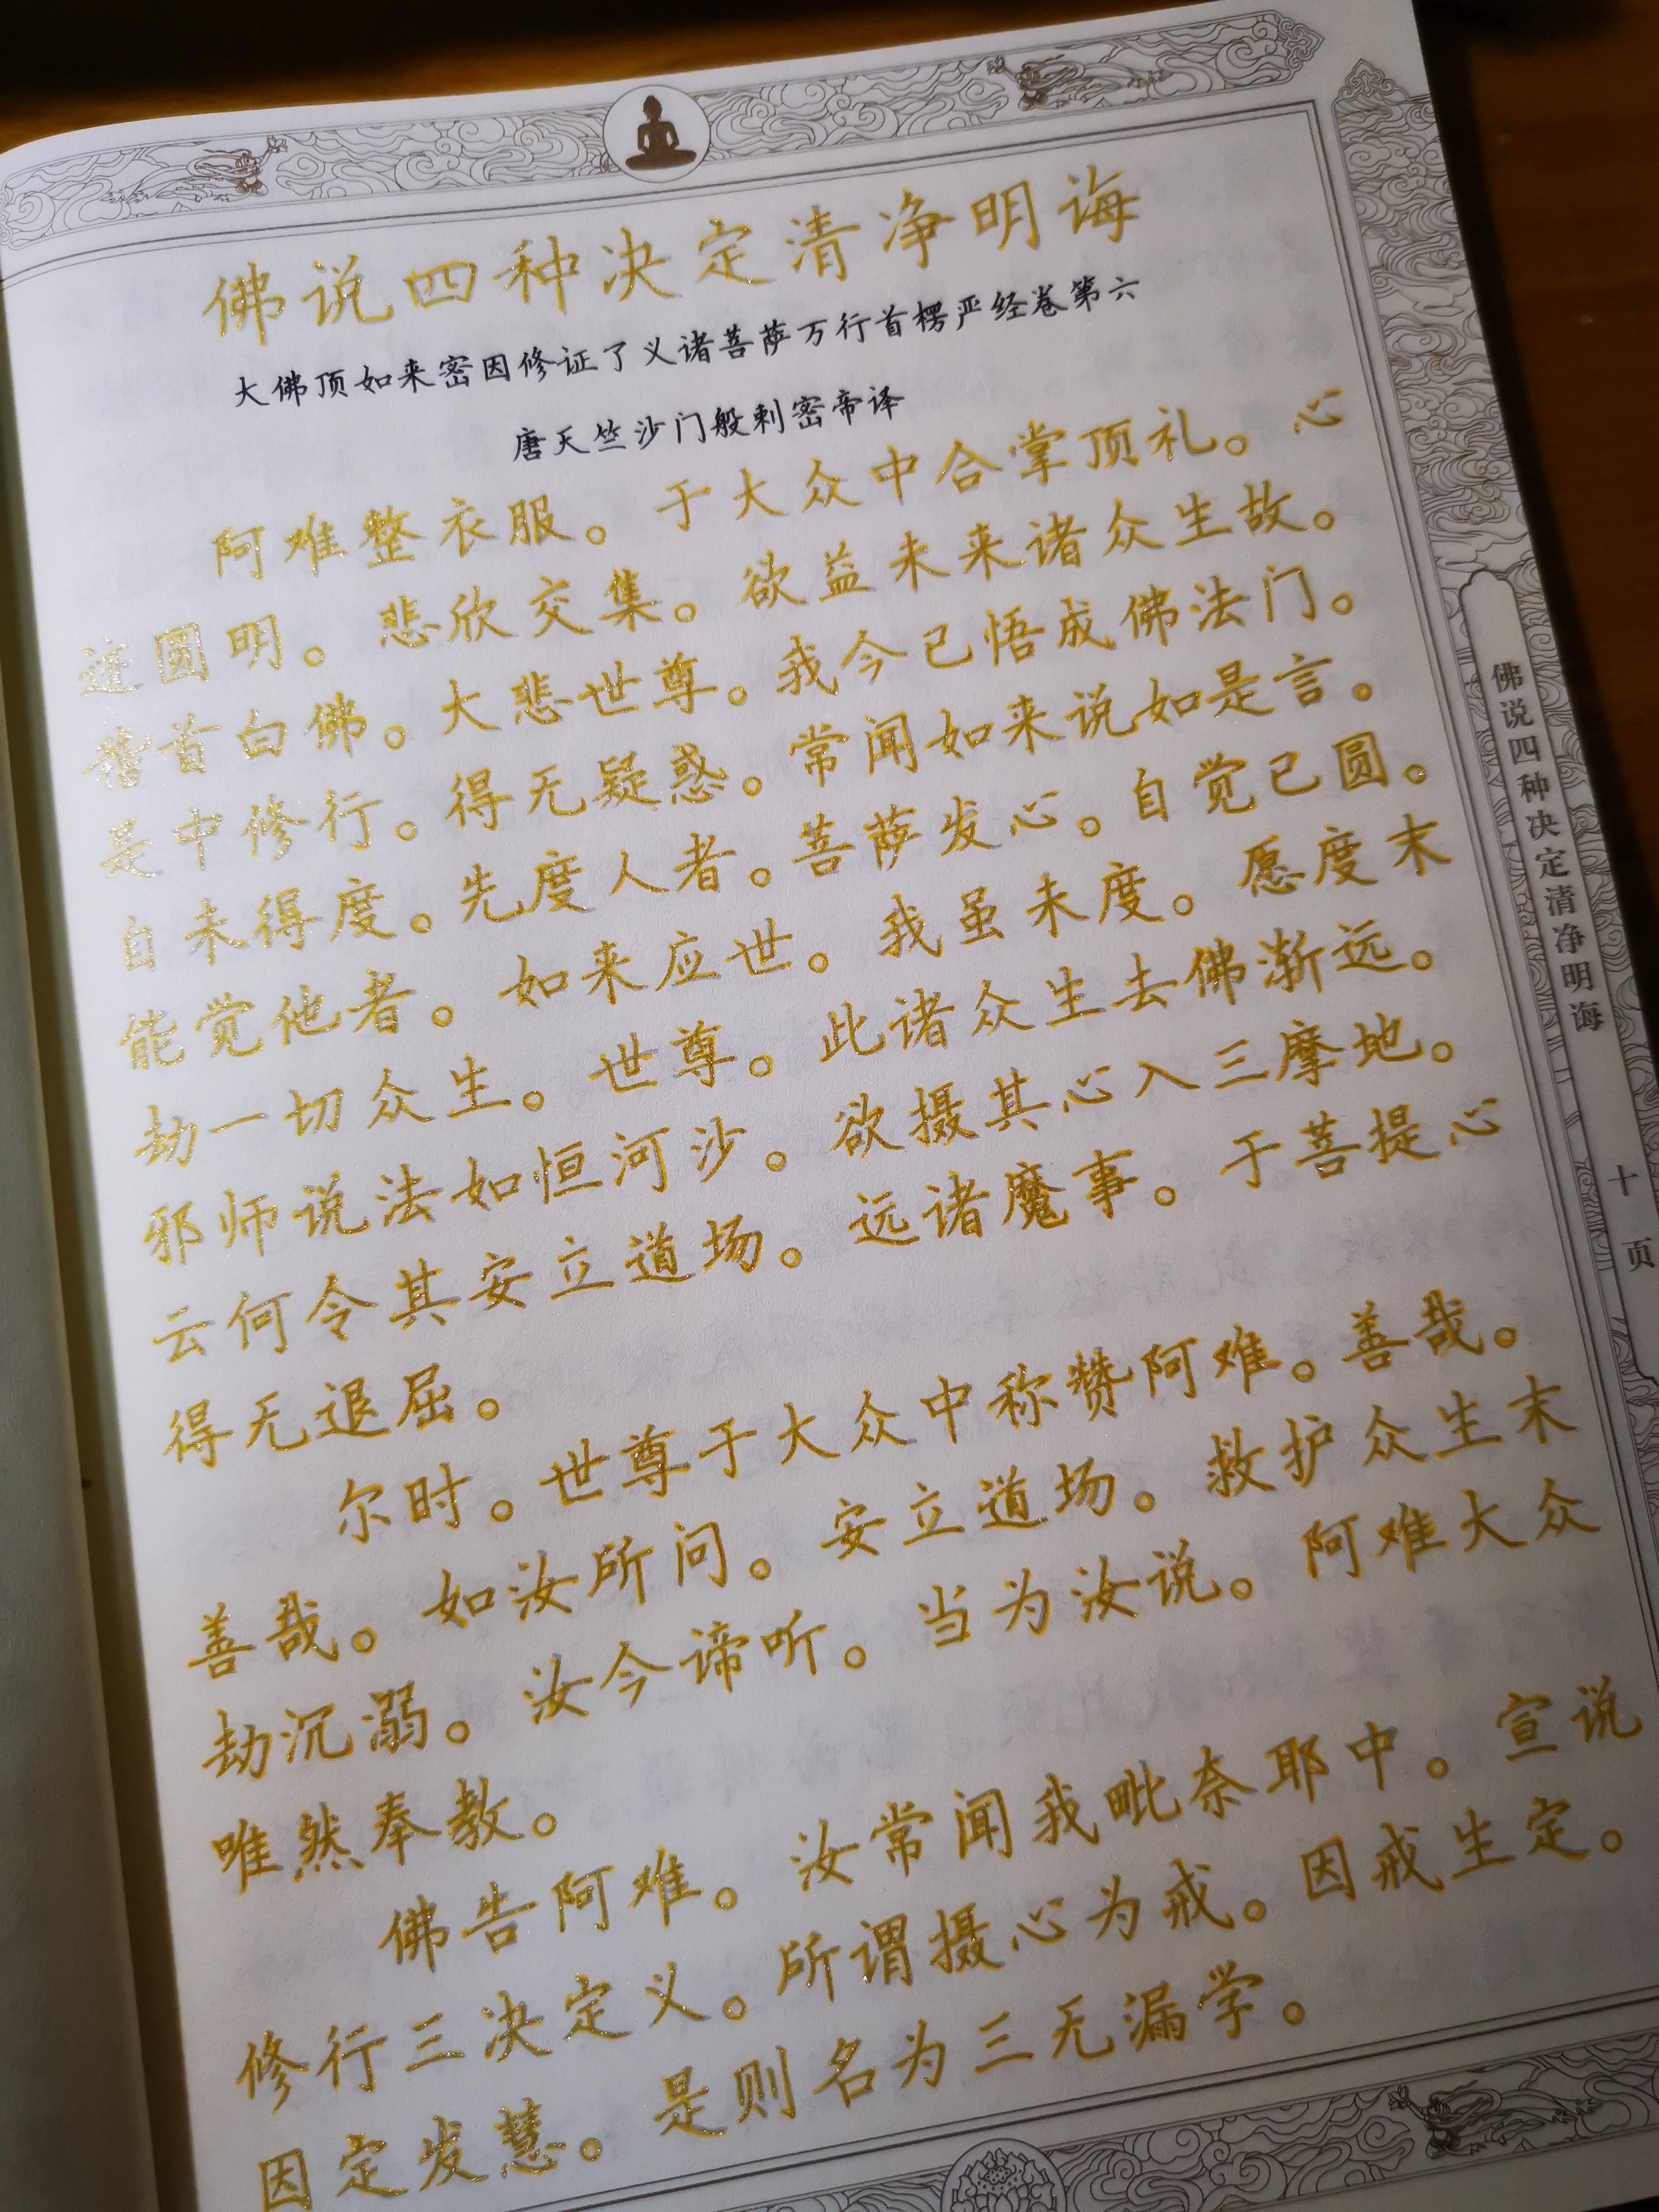 佛说四种决定清净明诲
大佛顶如来密因修证了义诸菩萨万行首楞严经卷第六
唐天竺沙门般剌密帝译
阿难整衣服。于大众中合掌顶礼。心
迹圆明。悲欣交集。欲益未来诸众生故。
稽首白佛。大悲世尊。我今已悟成佛法门。
是中修行。得无疑惑。常闻如来说如是言。
自未得度。先度人者。菩萨发心。自觉已圆。
能觉他者。如来应世。我虽未度。愿度末
劫一切众生。世尊。此诸众生去佛渐远。
邪师说法如恒河沙。欲摄其心入三摩地。
云何令其安立道场。远诸魔事。于菩提心
得无退屈。
尔时。世尊于大众中称赞阿难。善哉。
善哉。如汝所问。安立道场。救护众生末
劫沉溺。汝今谛听。当为汝说。阿难大众
唯然奉教。
佛告阿难。汝常闻我毗奈耶中。宣说
修行三决定义。所谓摄心为戒。因戒生定。
因定发慧。是则名为三无漏学。
佛说四种决定清净明诲
十页